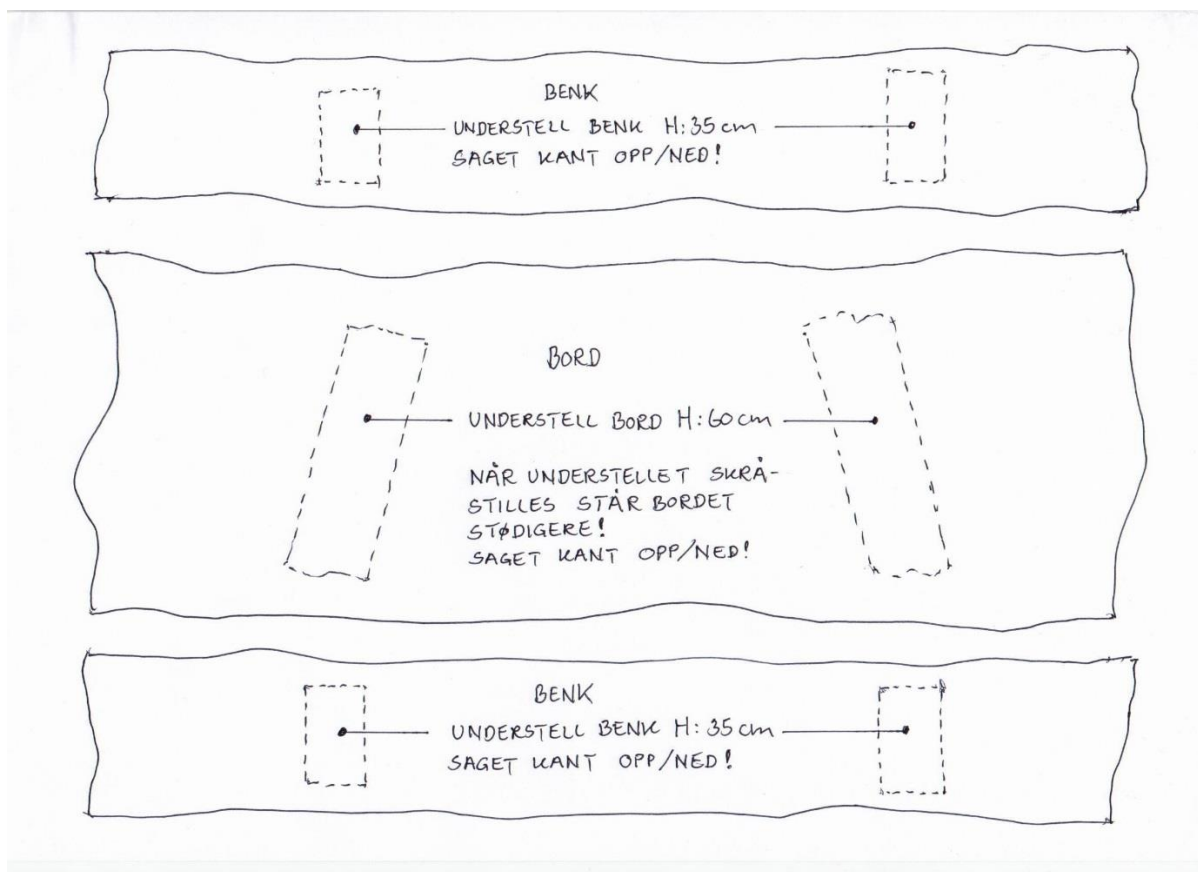 BENK
UNDERSTELL BENK H:35 cm
SAGET KANT OPP/NED!
BORD
UNDERSTELL BORD H:60 cm
NÅR UNDERSTELLET SKRÅ-
STILLES STÅR BORDET
STØDIGERE!
SAGET KANT OPP/NED!
BENK
UNDERSTELL BENK H:35 cm
SAGET KANT OPP/NED!